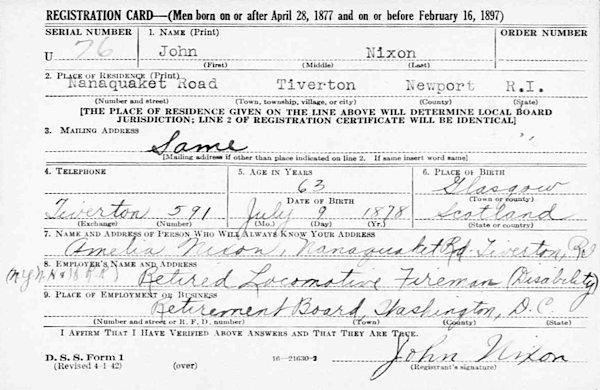 REGISTRATION CARD—(Men born on or after April 28, 1877 and on or before February 16, 1897)
SERIAL NUMBER 1. NAME (Print) ORDER NUMBER
U 76 John Nixon
(First) (Middle) (Last)
2. PLACE OF RESIDENCE (Print)
Nanaquaket Road Tiverton Newport R.I.
(Number and street) (Town, township, village, or city) (County) (State)
[THE PLACE OF RESIDENCE GIVEN ON THE LINE ABOVE WILL DETERMINE LOCAL BOARD
JURISDICTION; LINE 2 OF REGISTRATION CERTIFICATE WILL BE IDENTICAL]
3. MAILING ADDRESS
Same
[Mailing address if other than place indicated on line 2. If same insert word same]
4. TELEPHONE 5. AGE IN YEARS 6. PLACE OF BIRTH
63 Glasgow
DATE OF BIRTH (Town or county)
Tiverton 591 July 9 1878 Scotland
(Exchange) (Number) (Mo.) (Day) (Yr.) (State or country)
7. NAME AND ADDRESS OF PERSON WHO WILL ALWAYS KNOW YOUR ADDRESS
Amelia Nixon, Nanaquaket Rd. Tiverton, R.I
8. EMPLOYER'S NAME AND ADDRESS
(N.Y.N.H.&H.R.R.) Retired Locomotive Fireman (Disability)
9. PLACE OF EMPLOYMENT OR BUSINESS
Retirement Board, Washington, D.C.
(Number and street or R. F. D. number) (Town) (County) (State)
I AFFIRM THAT I HAVE VERIFIED ABOVE ANSWERS AND THAT THEY ARE TRUE.
John Nixon
D. S. S. Form 1 16—21630-2 (Registrant's signature)
(Revised 4-1-42) (over)